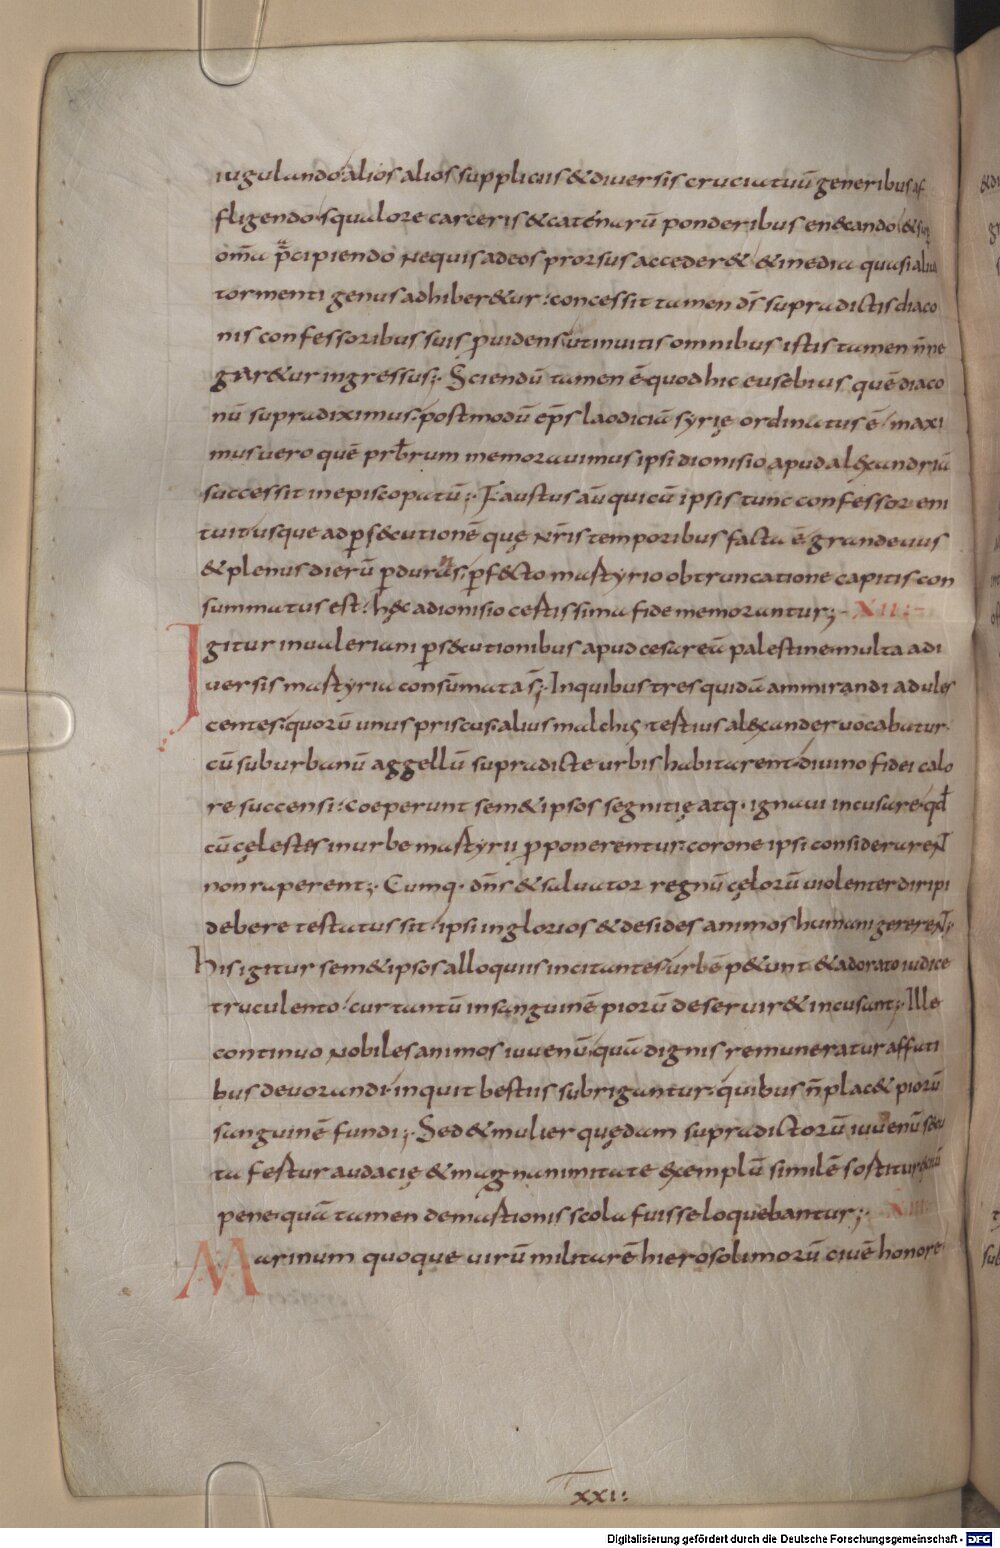 iugulando alios alios suppliciis & diuersis cruciatuū generibus af
fligendo squalore carceris & catenarū ponderibus enecando & sup
om̄a p̄cipiendo nequis adeos prorsus acceder& & inedia quasi aliud
tormenti genus adhiber&ur: concessit tamen d̄s supradictis diaco
nis confessoribus suis p̱uidens utinuitis omnibus istis tamen n̄ ne
gar&ur ingressus;· Sciendū tamen ē quod hic eusebius quē diaco
nū supradiximus. postmodū ep̄s laodiciā syrię ordinatus ē / maxi
mus uero quē prb̄rum memorauimus ipsi dionisio apud alexandriā
successit in episcopatū;· Faustus aū qui cū ipsis tunc confessor eni
tuit usque ad p̱s&cutionē quę nr̄is temporibus facta ē grandeuus
& plenus dierū p̱durans. p̱f&cto martyrio obtruncatione capitis con
summatus est: hęc adionisio certissima fide memorantur;· XII:
Igitur in ualeriani p̱s&cutionibus apud cesareā palestine multa adi
uersis martyria consūmata s̄;· In quibus tres quidā ammirandi adules
centes. quorū unus priscus. alius malchus. tertius alexander uocabatur.
cū suburbanū aggellū supradicte urbis habitarent. diuino fidei calo
re succensi: coeperunt sem& ipsos segnitię atq· ignaui incusare. qd̄
cū cęlestes in urbe martyrii p̱ponerentur: corone ipsi considerareNT
non raperent;· Cumq· dn̄s & saluator regnū cęlorū uiolenter diripi
debere testatus sit. ipsi inglorios & desides animos humani gerereNT;
his igitur sem& ipsos alloquiis incitantes. urbē p&unt & adorato iudice
truculento. cur tantū in sanguinē piorū deseruir& incusant;· Ille
continuo nobiles animos iuuenū. quā dignis remuneratur affati
bus deuorandi. inquit bestiis subrigantur. quibus n̄ plac& piorū
sanguinē fundi;· Sed & mulier quędam supradictorū iuuenū secu
ta fertur audacię & magnanimitate exemplū similē sortitur exitū
pene. quā tamen de martionis scola fuisse loquebantur;· XIII
Marinum quoque uirū militarē hierosolimorū ciuē honore
XXI:
Digitalisierung gefördert durch die Deutsche Forschungsgemeinschaft - DFG